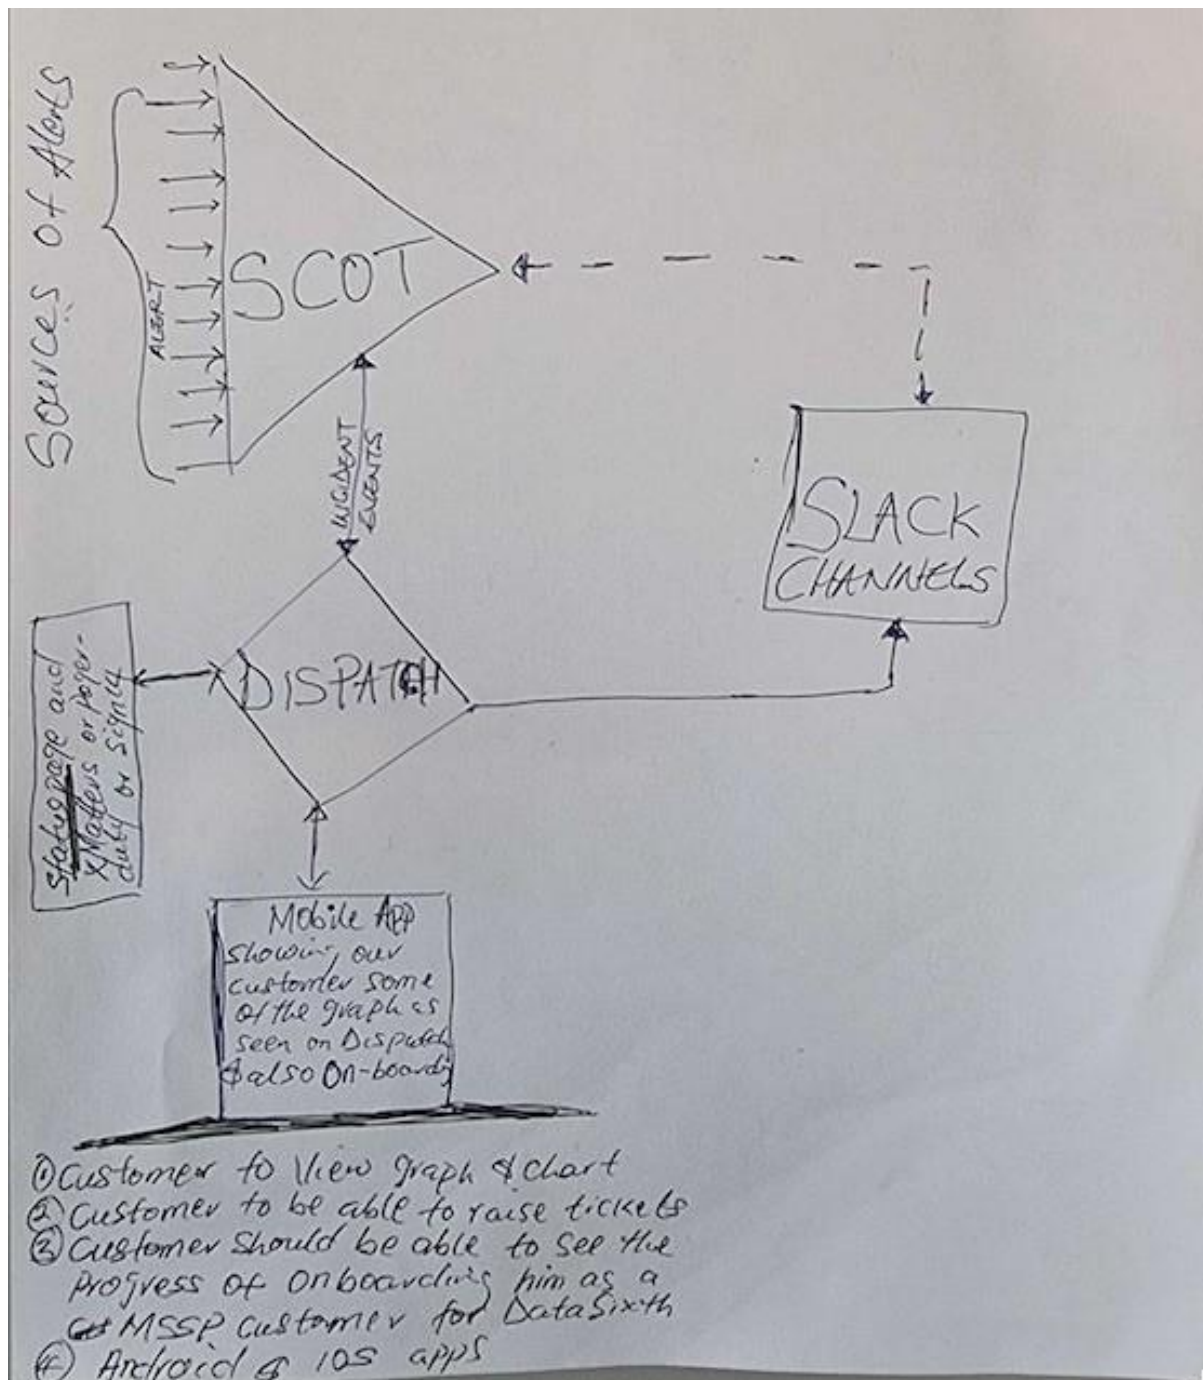 Sources of Alerts
ALERT
SCOT
INCIDENT
EVENTS
SLACK
CHANNELS
DISPATCH
Statuspage and
XMatters or pager-
duty or signl4
Mobile App
Showing our
customer some
of the graph as
seen on Dispatch
& also On-boarding
① Customer to View graph & chart
② Customer to be able to raise tickets
③ Customer should be able to see the
Progress of Onboarding him as a
MSSP customer for DataSixth
④ Android & IOS apps